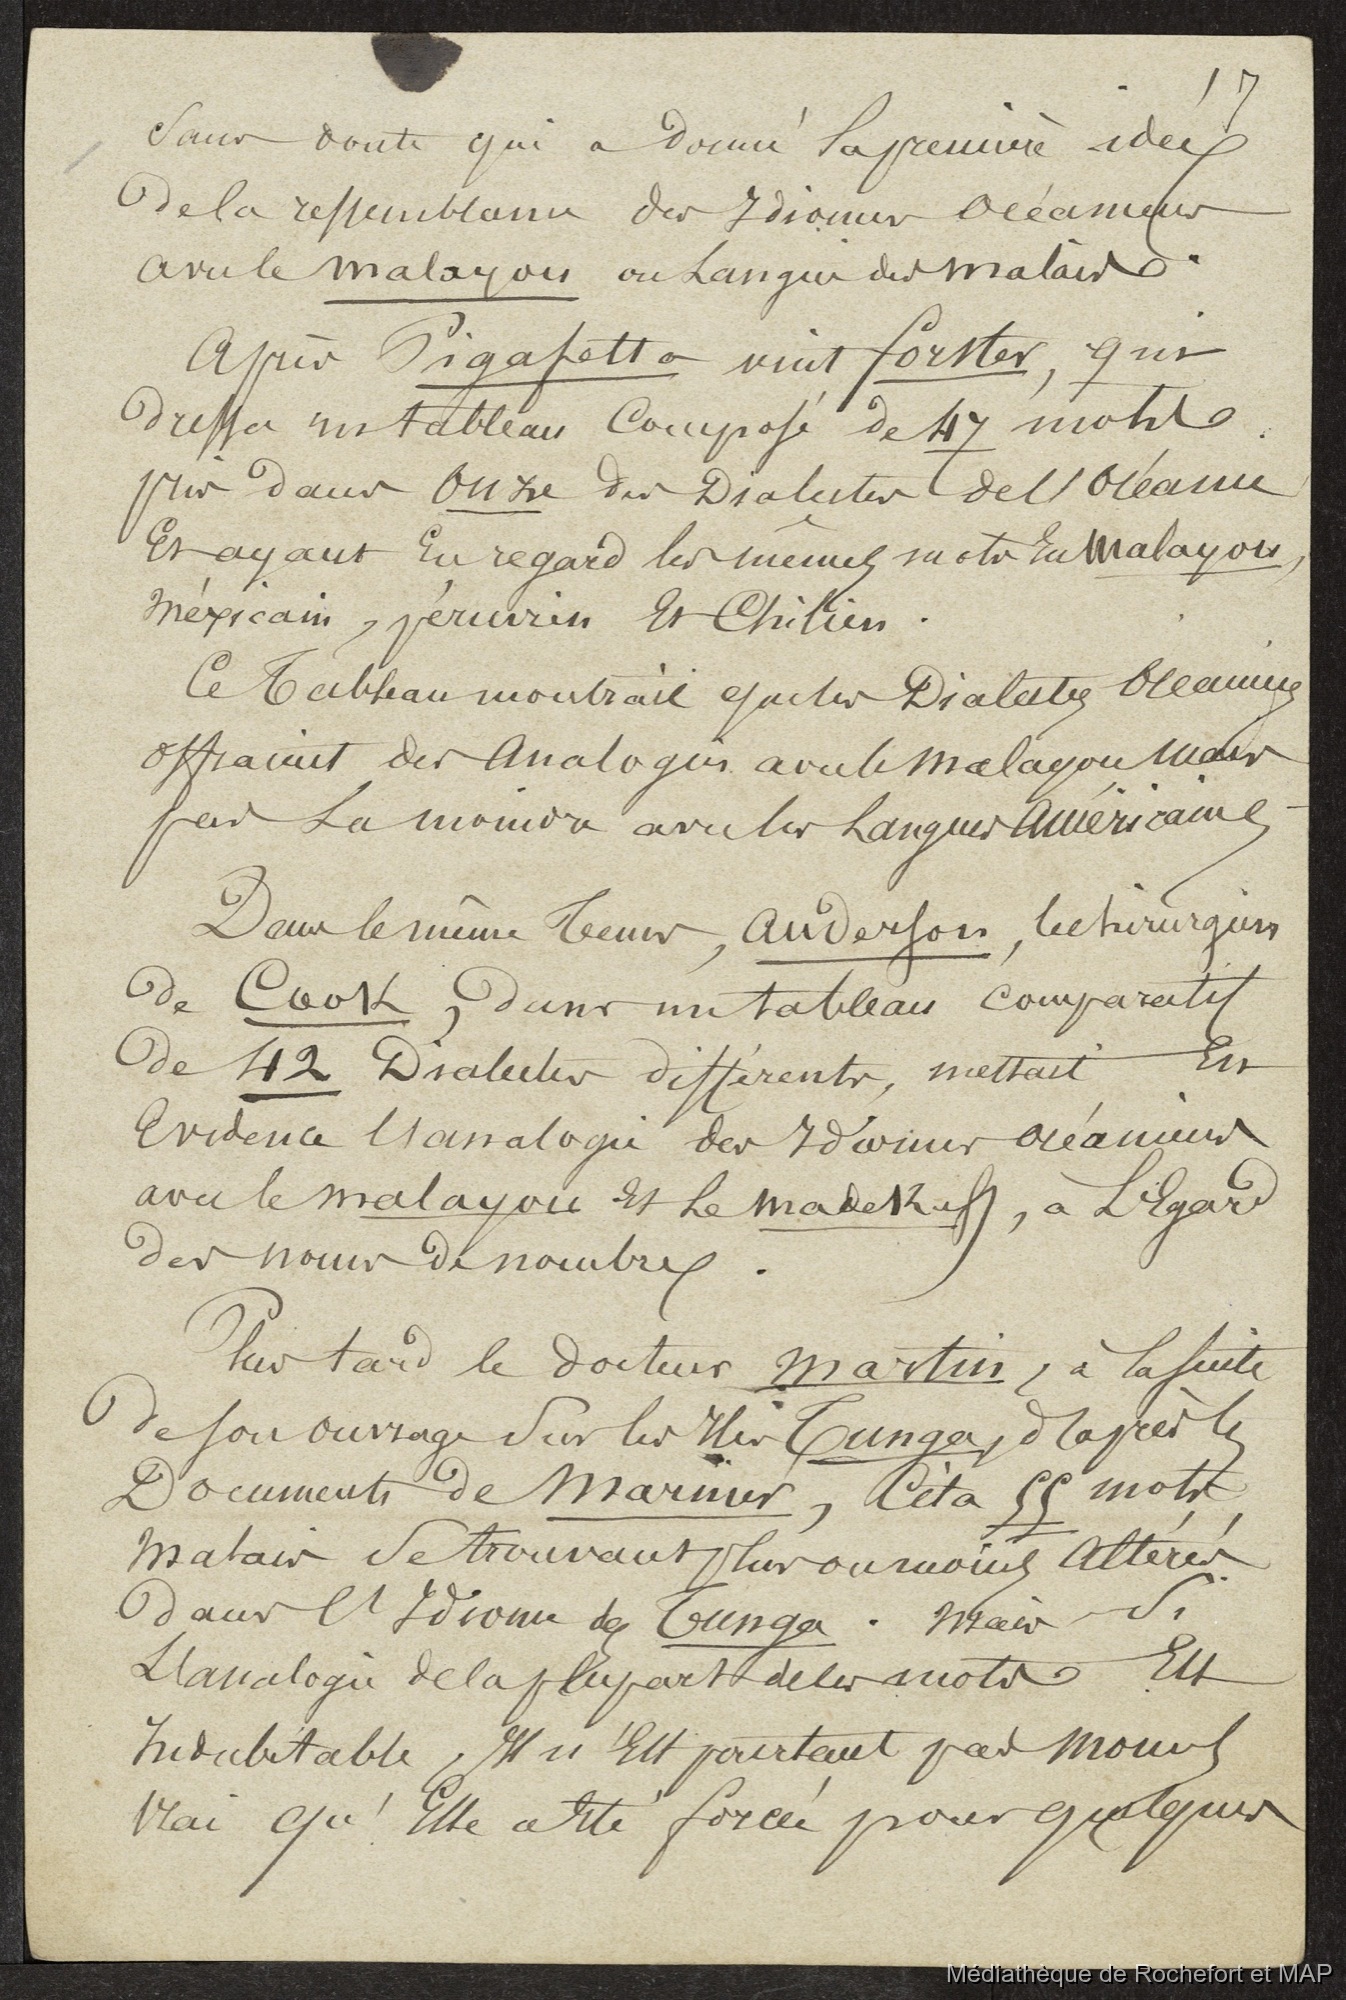 17
Sans doute qui a donné la première idée
de la ressemblance des Idiomes Océaniens
avec le malayou ou Langue des malais.
Après Pigafetta vint forster, qui
dressa un tableau Composé de 47 mots
pris dans Onze des Dialectes de l'Océanie
Et ayant En regard les mêmes mots En Malayou,
Méxicain, péruvien Et Chilien.
Ce Tableau montrait que les Dialectes Océaniens
offraient des Analogies avec le Malayou mais
pas La moindre avec les Langues Américaines
Dans le même tems, Anderson, le chirurgien
de Cook, dans un tableau comparatif
de 42 Dialectes différents, mettait En
Evidence l'analogie des Idiomes Océaniens
avec le malayou Et Le madekass, à L'Egard
des noms de nombres.
Plus tard le docteur Martin, à la suite
de son ouvrage Sur les Iles Tunga, d'après les
Documents de Mariner, Cita 55 mots
Malais Se trouvant plus ou moins Altérés
dans l'Idiome de Tunga. Mais Si
L'analogie de la plupart de ces mots Est
Indubitable, Il n'Est pourtant pas Moins
Vrai qu'Elle a Eté forcée pour quelques
Médiathèque de Rochefort et MAP